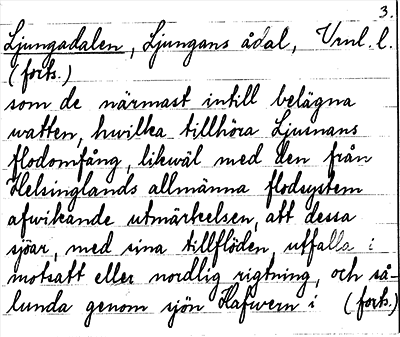 3.
Ljungadalen, Ljungans ådal, Vrml. l.
(forts.)
som de närmast intill belägna
watten, hwilka tillhöra Ljusnans
flodomfång, likwäl med den från
Helsinglands allmänna flodsystem
afwikande utmärkelsen, att dessa
sjöar, med sina tillflöden utfalla i
motsatt eller nordlig rigtning, och så-
lunda genom sjön Hafwern i (forts.)